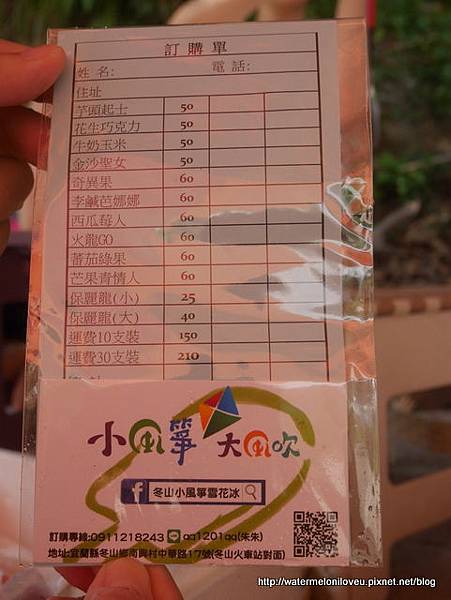 訂購單
姓名: 電話:
住址
芋頭起士 50
花生巧克力 50
牛奶玉米 50
金沙聖女 50
奇異果 60
李鹹芭娜娜 60
西瓜莓人 60
火龍GO 60
蕃茄綠果 60
芒果青情人 60
保麗龍(小) 25
保麗龍(大) 40
運費10支裝 150
運費30支裝 210
小風箏大風吹
冬山小風箏雪花冰
訂購專線:0911218243 aa1201aa(朱朱)
地址:宜蘭縣冬山鄉南興村中華路17號(冬山火車站對面)
http://watermeloniloveu.pixnet.net/blog